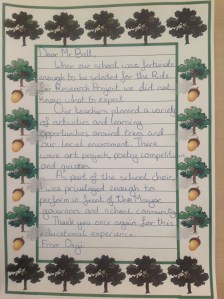 Dear Mr Bull
When our school was fortunate
enough to be selected for the Ride
for Research Project we did not
know what to expect.
Our teachers planned a variety
of activities and learning
opportunities around trees and
our local enviroment. There
were art projects, poetry competitions
and quizzes.
As part of the school choir,
I was privileged enough to
perform in front of the Mayor,
governors and school community.
Thank you once again for this
educational experience.
From